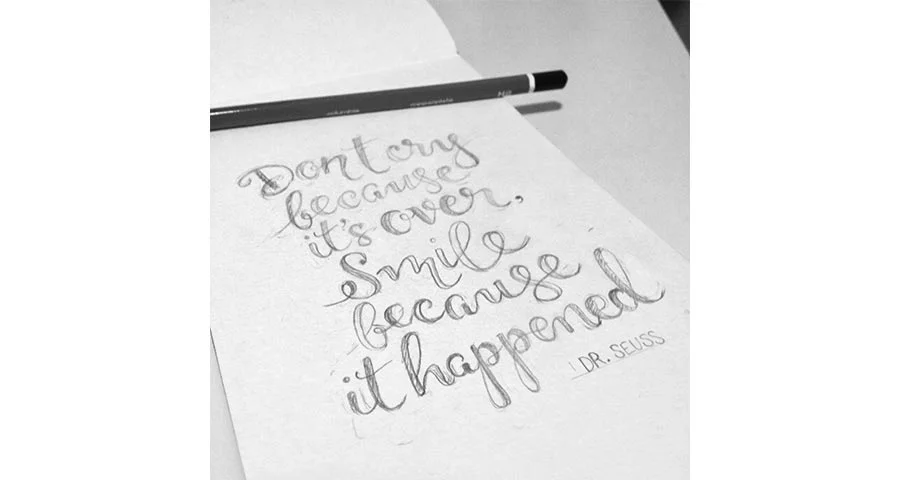 HB
Dont cry
because
it's over,
Smile
because
it happened
DR. SEUSS